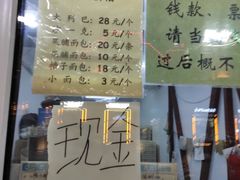 大列巴：28元/个
克：5元/个
包：20元/条
面包：10元/个
子面包：18元/个
小面包：3元/个
钱款、票
请当
过后概不
现金